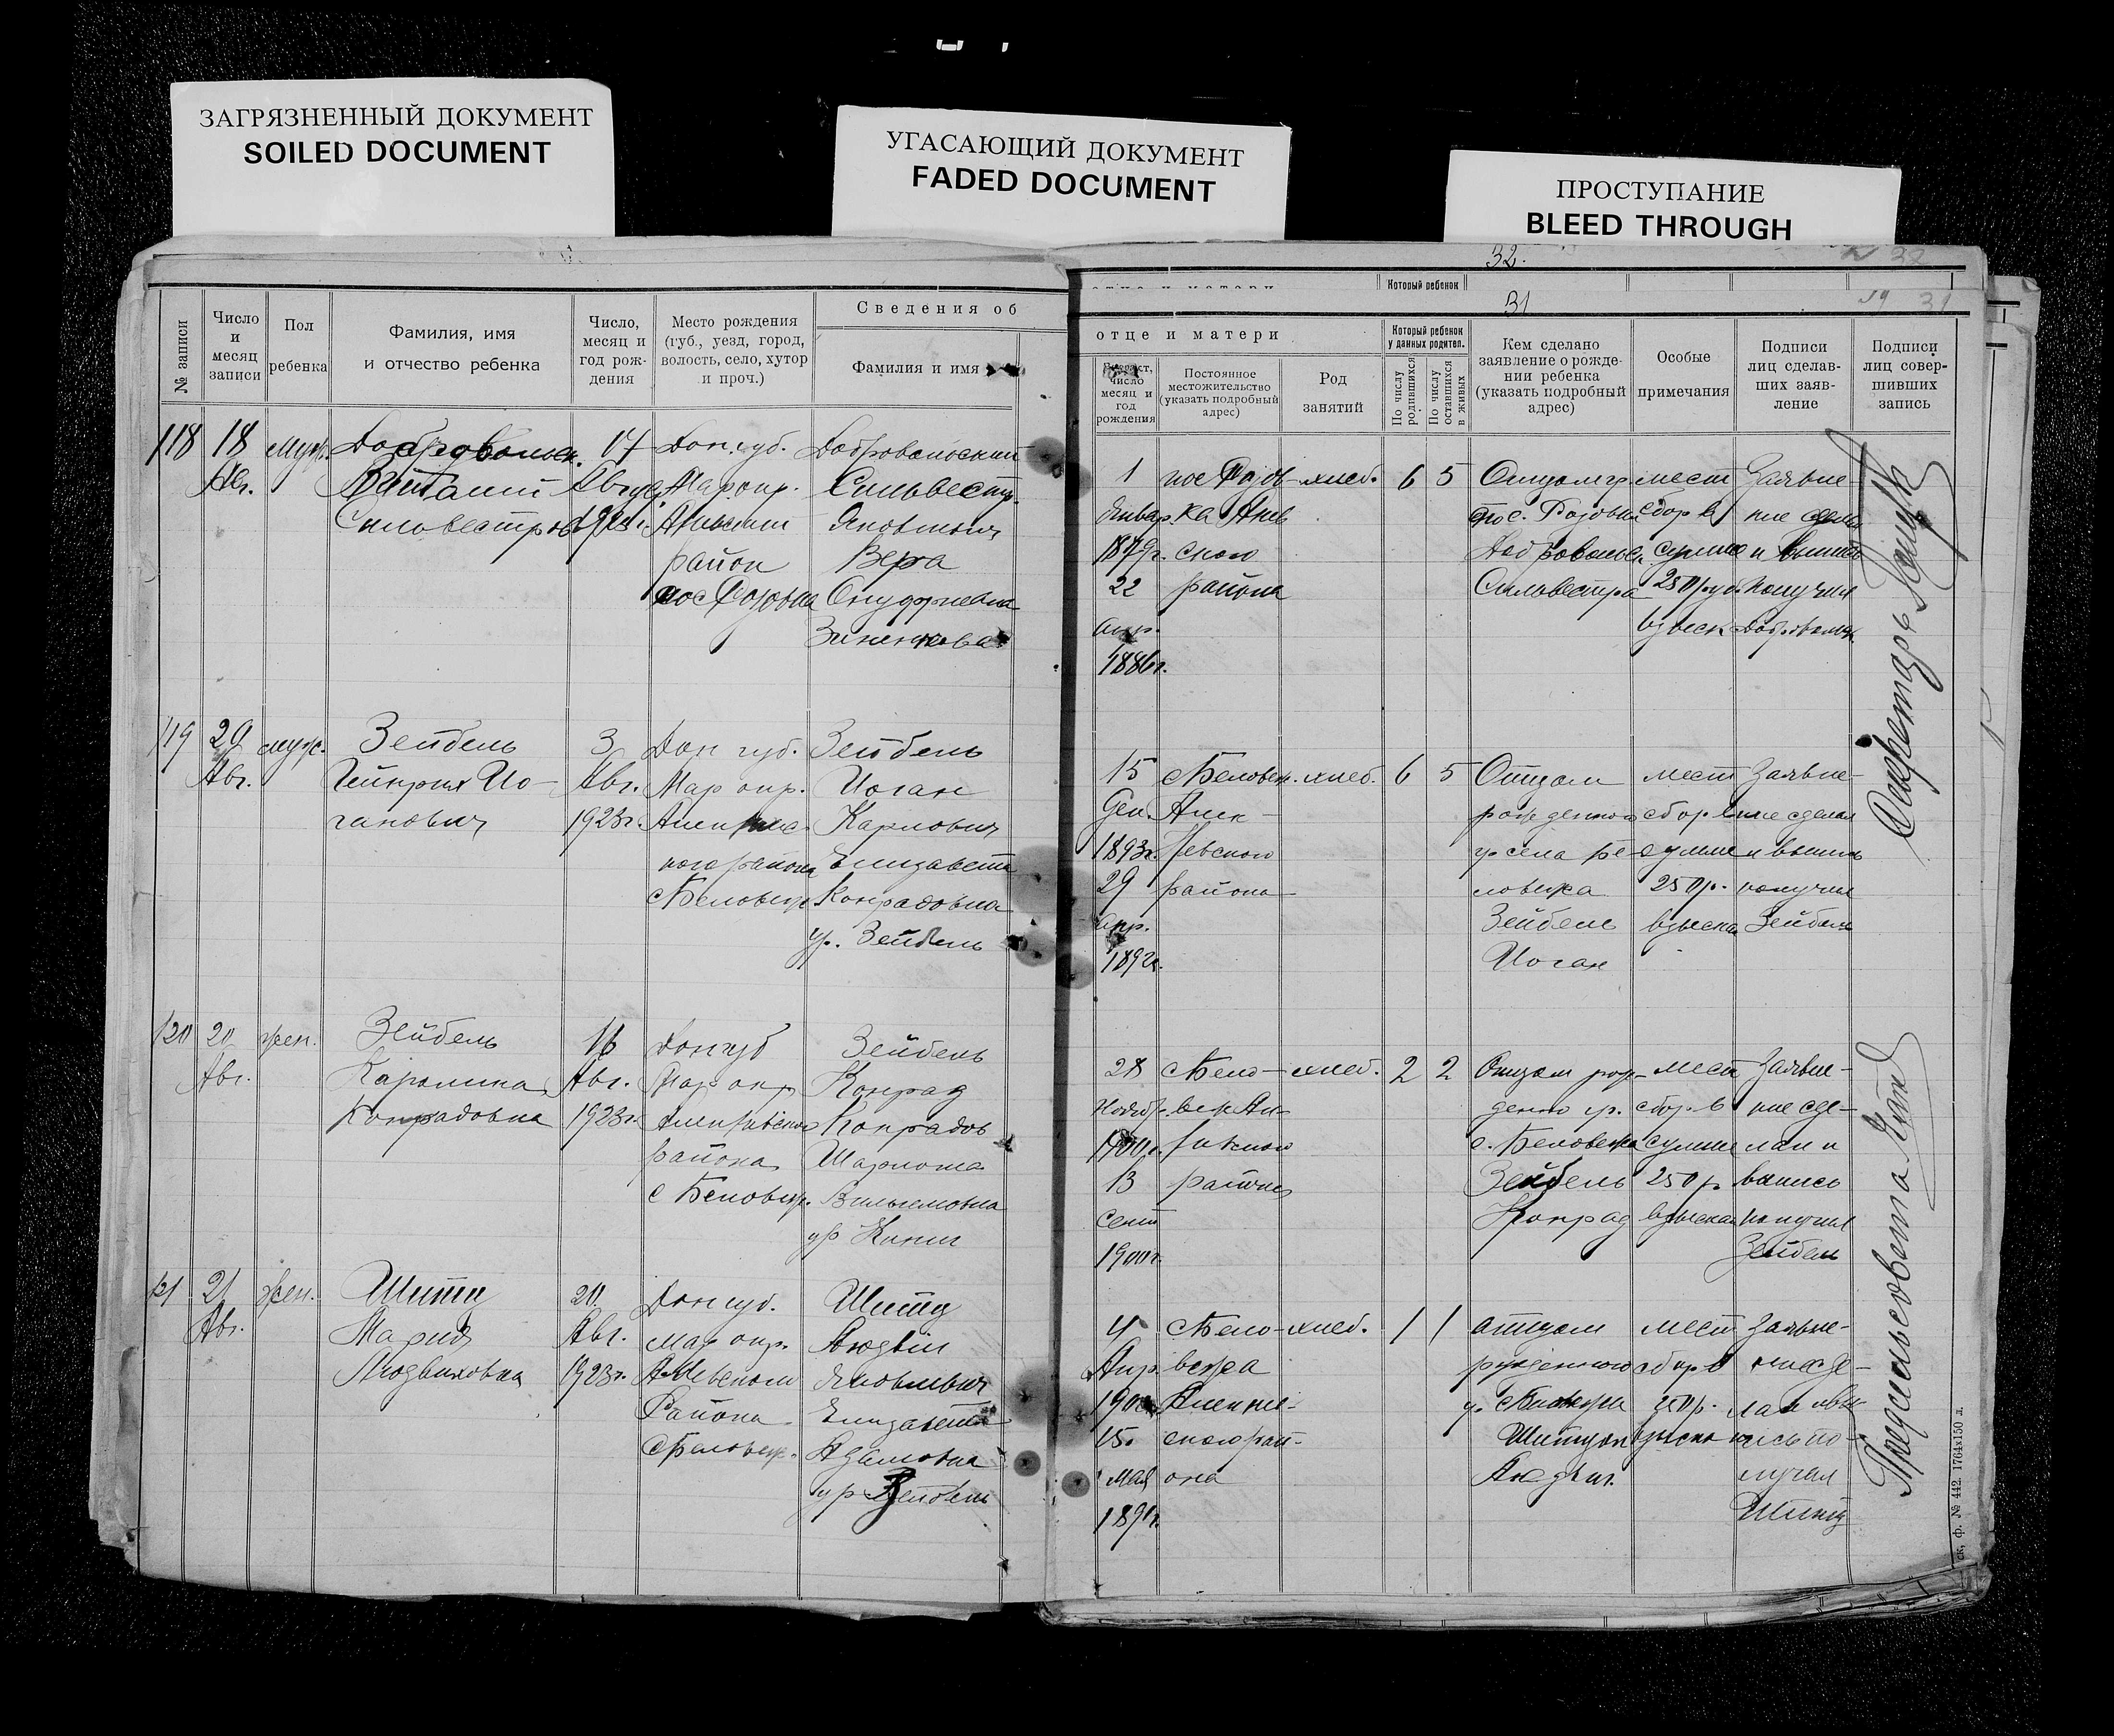 ЗАГРЯЗНЕННЫЙ ДОКУМЕНТ
SOILED DOCUMENT
УГАСАЮЩИЙ ДОКУМЕНТ
FADED DOCUMENT
ПРОСТУПАНИЕ
BLEED THROUGH
32.
N 32
Который ребенок
31
31
№ записи
Число
и
месяц
записи
Пол
ребенка
Фамилия, имя
и отчество ребенка
Число,
месяц и
год рож-
дения
Место рождения
(губ., уезд, город,
волость, село, хутор
и проч.)
Сведения об
Фамилия и имя
отце и матери
число
месяц и
год
рождения
Постоянное
местожительство
(указать подробный
адрес)
Род
занятий
Который ребенок
у данных родител.
По числу
родившихся
По числу
оставшихся
в живых
Кем сделано
заявление о рожде-
нии ребенка
(указать подробный
адрес)
Особые
примечания
Подписи
лиц сделав-
ших заяв-
ление
Подписи
лиц совер-
шивших
запись
118
18
Авг.
муж.
Добровольск.
Виталий
Сильвестров
17
Августа
1923 г.
Дон. губ.
Мар окр.
район
пос Розовка
Добровольский
Сильвестр.
Яковлевич
Вера
Онуфриевна
Зиненкова
1
Январ.
1879г.
22
апр.
1886г.
пос Розов-
ка Алек
ского
района
хлеб.
6
5
Отцом гр
пос. Розовка
Добровольск.
Сильвестра
мест
сбор в
сумме
250 руб.
взыск
Заявле-
ние сделал
и выпись
получил
Добровольск.
119
29
Авг.
муж.
Зейбель
Гейнрих Ио-
ганович
3
Авг.
1923г.
Дон губ.
Мар окр.
кого района
с Беловеж
Зейбель
Иоган
Карлович
Елизавета
Конрадовна
ур. Зейбель
15
Ген.
1893г.
29
апр.
1892г.
с Беловеж.
Алек-
севского
района
хлеб.
6
5
Отцом
рожденного
гр села Бе-
ловежа
Зейбель
Иоган
мест
сбор в
сумме
250р.
взыска
Заявле-
ние сделал
и выпись
получил
Зейбель
120
20
Авг.
жен.
Зейбель
Каролина
Конрадовна
16
Авг.
1923г.
Дон губ
Мар окр
района
с Беловеж.
Зейбель
Конрад
Конрадов
Шарлота
Вильгемовна
ур Киниг
28
Ноябр.
1900г.
13
сент
1900г.
с Бело-
района
хлеб.
2
2
Отцом рож-
денно гр.
с. Беловежа
Зейбель
Конрад
мест
сбор в
сумме
250 р.
взыскан
Заявле-
ние сде-
лал и
выпись
получил
Зейбель
121
21
Авг.
жен.
Шитц
Мария
Людвиховна
20.
Авг.
1923г.
Дон губ.
Мар окр.
Района
с Беловеж.
Шитц
Людвиг
Яковлевич
Елизавета
Адамовна
ур Зейбель
4
Апр
15.
мая
с Бело-
вежа
ского рай-
она
хлеб.
1
1
отцом
рожденного
Шитцом
Людвиг.
мест
сбор в
250р.
взыска
Заявле-
ние сде-
лал и вы-
пись по-
лучил
Шитц
Секретарь
Предсельсовета
ск, ф. № 442. 1764х150 л.